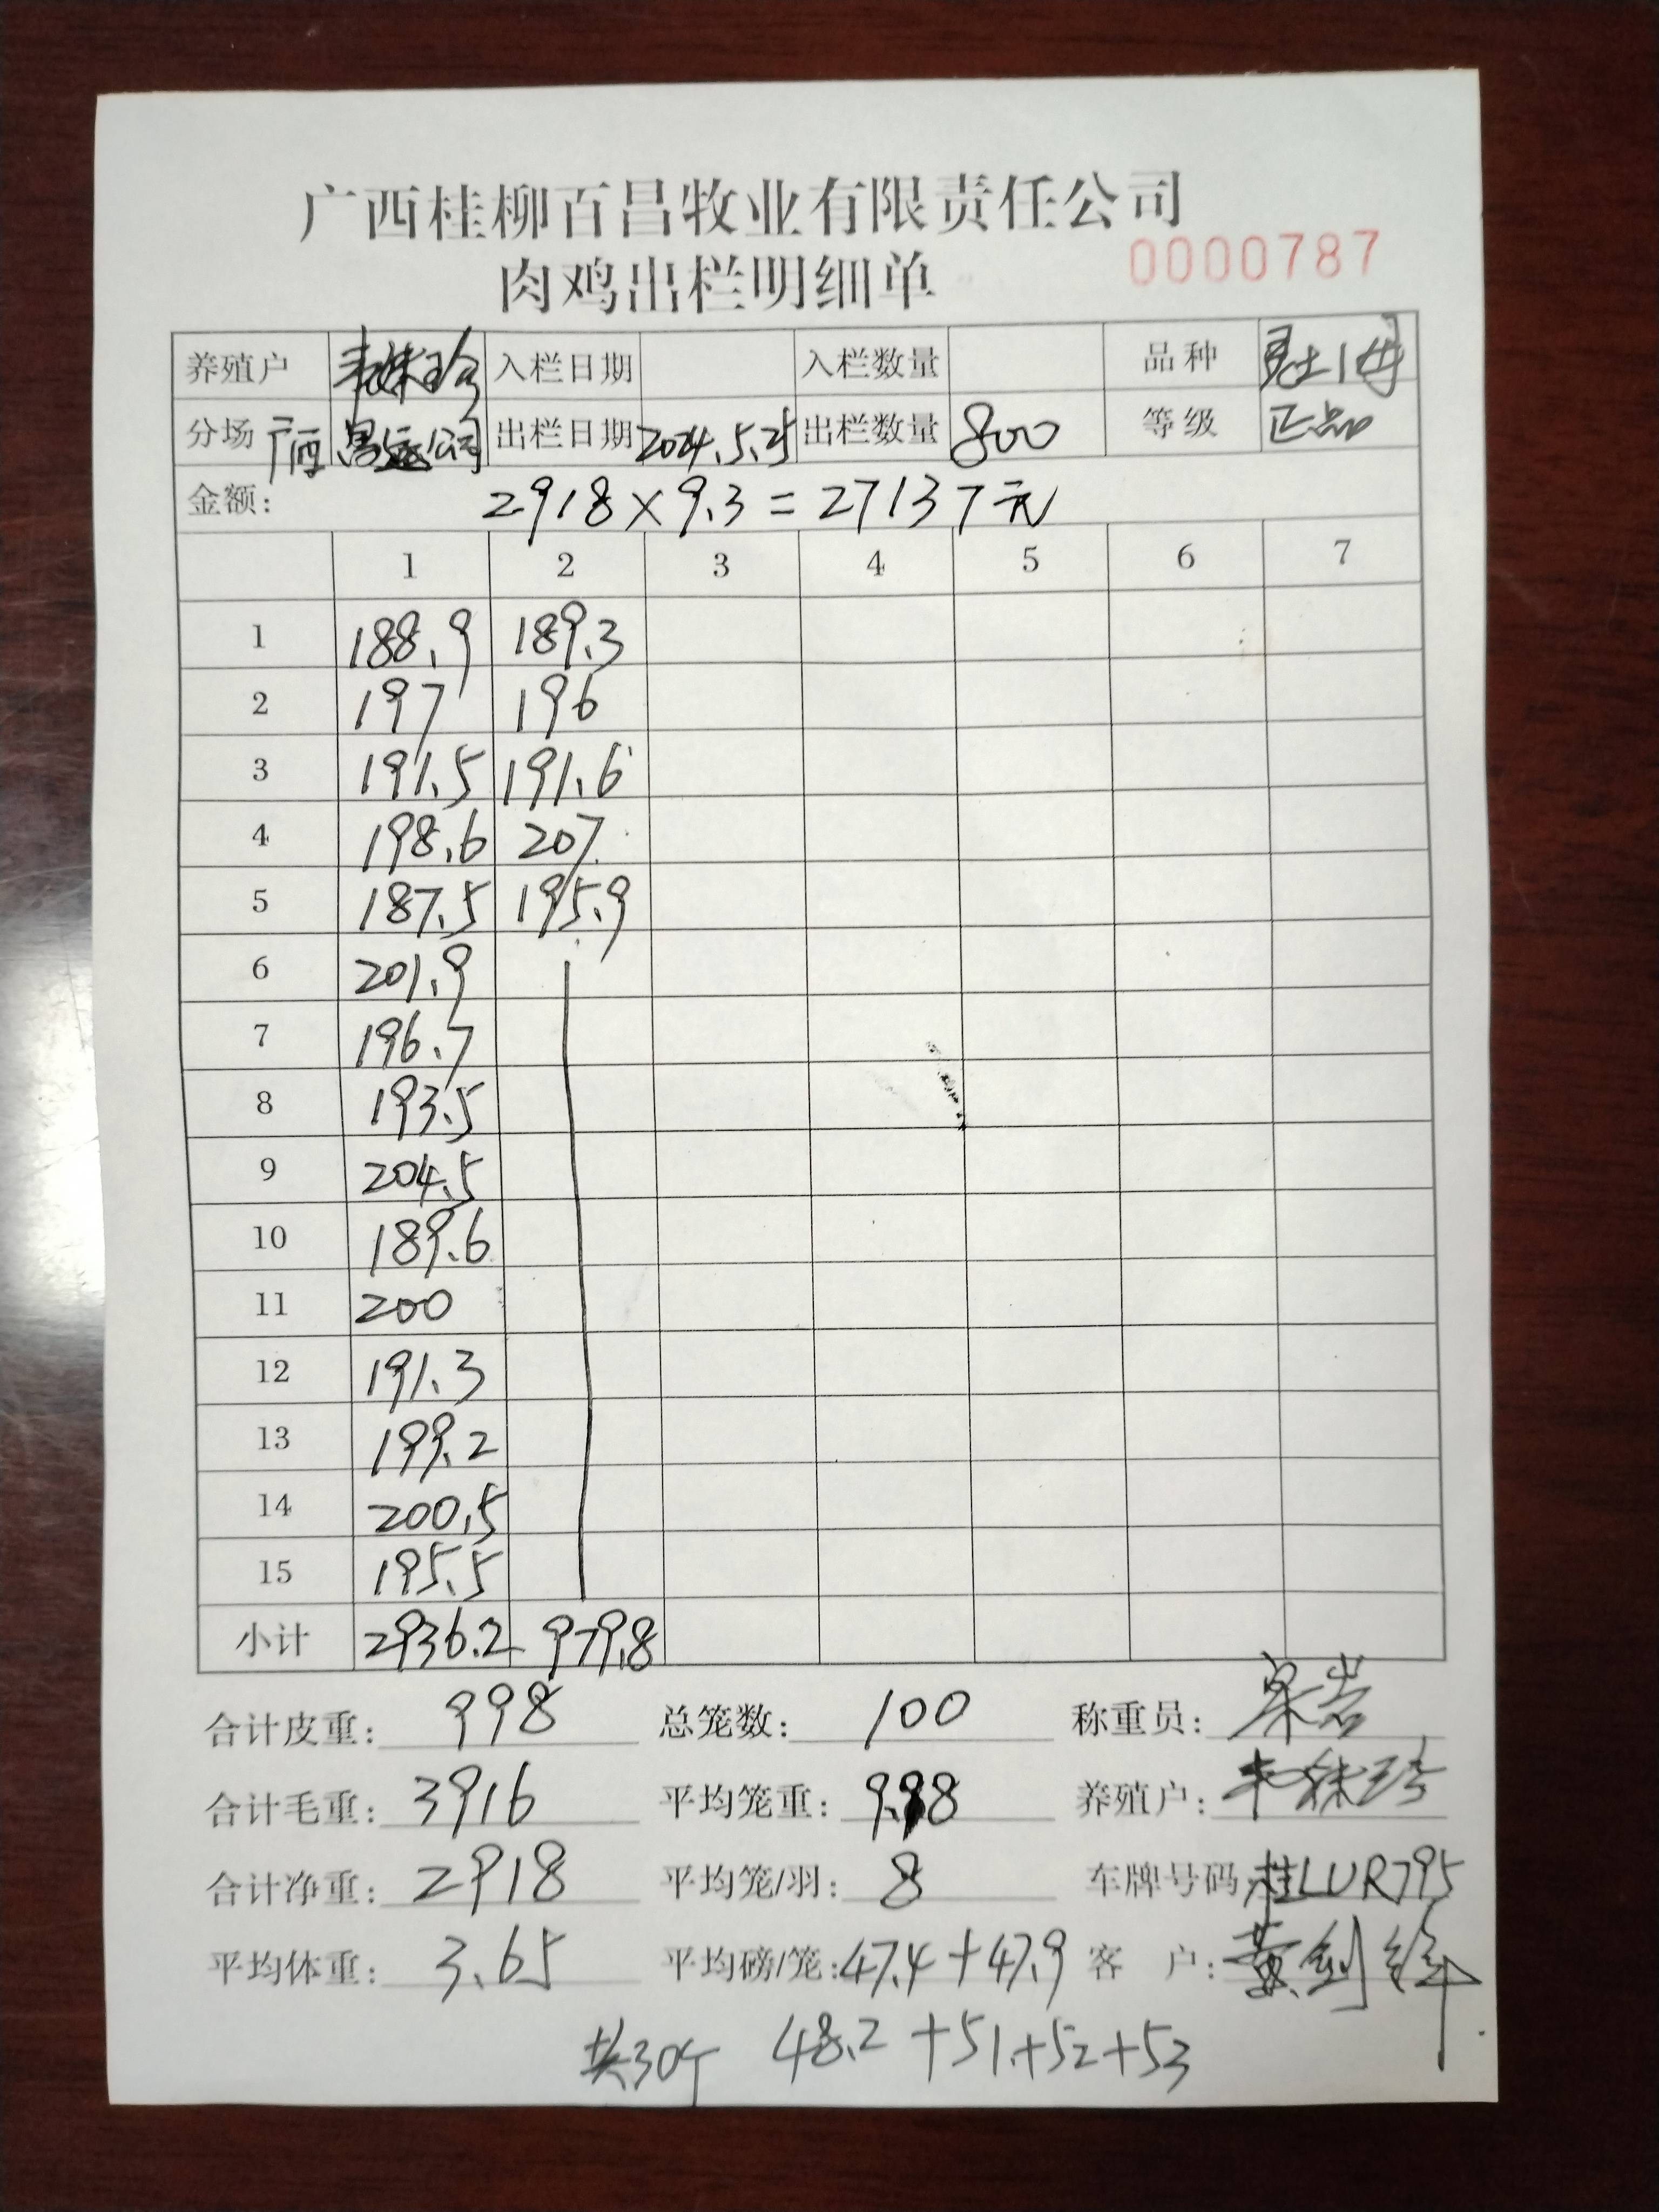 广西桂柳百昌牧业有限责任公司
肉鸡出栏明细单 0000787
养殖户 入栏日期 入栏数量 品种
分场 广西昌运公司 出栏日期 2024.5.25 出栏数量 800 等级 正品
金额: 2918×9.3=27137元
1 2 3 4 5 6 7
1 188.9 189.3
2 197 196
3 191.5 191.6
4 198.6 207
5 187.5 195.9
6 201.9
7 196.7
8 193.5
9 204.5
10 189.6
11 200
12 191.3
13 199.2
14 200.5
15 195.5
小计 2936.2 979.8
合计皮重: 998 总笼数: 100 称重员:
合计毛重: 3916 平均笼重: 9.98 养殖户:
合计净重: 2918 平均笼/羽: 8 车牌号码: 桂LUR795
平均体重: 3.65 平均磅/笼: 47.4+47.9 客 户:
共30个 48.2+51+52+53